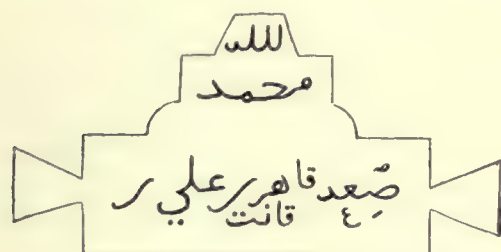 لله
محمد
صعد قاهرير علي ر
٤ قانت